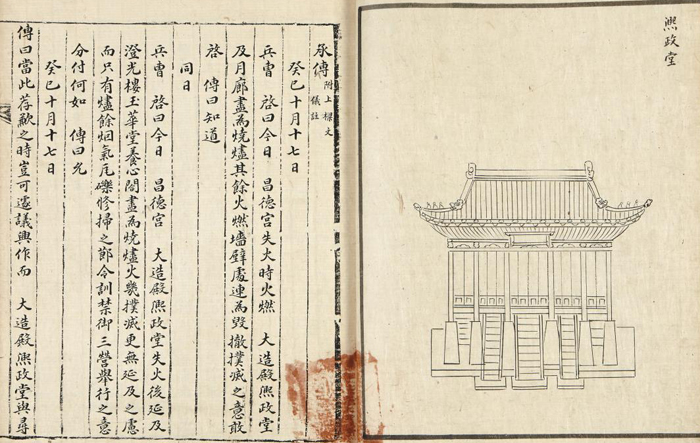 熙政堂
承傳 附上樑文
儀註
癸巳十月十七日
兵曹 啓曰今日 昌德宮失火時火燃 大造殿熙政堂
及月廊盡為燒燼其餘火燃墻壁處連為毀撤撲滅之意敢
啓 傳曰知道
同日
兵曹 啓曰今日 昌德宮 大造殿熙政堂失火後延及
澄光樓玉華堂養心閤盡為燒燼火幾撲滅更無延及之慮
而只有燼餘烟氣瓦礫修掃之節令訓禁御三營舉行之意
分付何如 傳曰允
癸巳十月十七日
傳曰當此荐歉之時豈可遽議興作而 大造殿熙政堂與尋